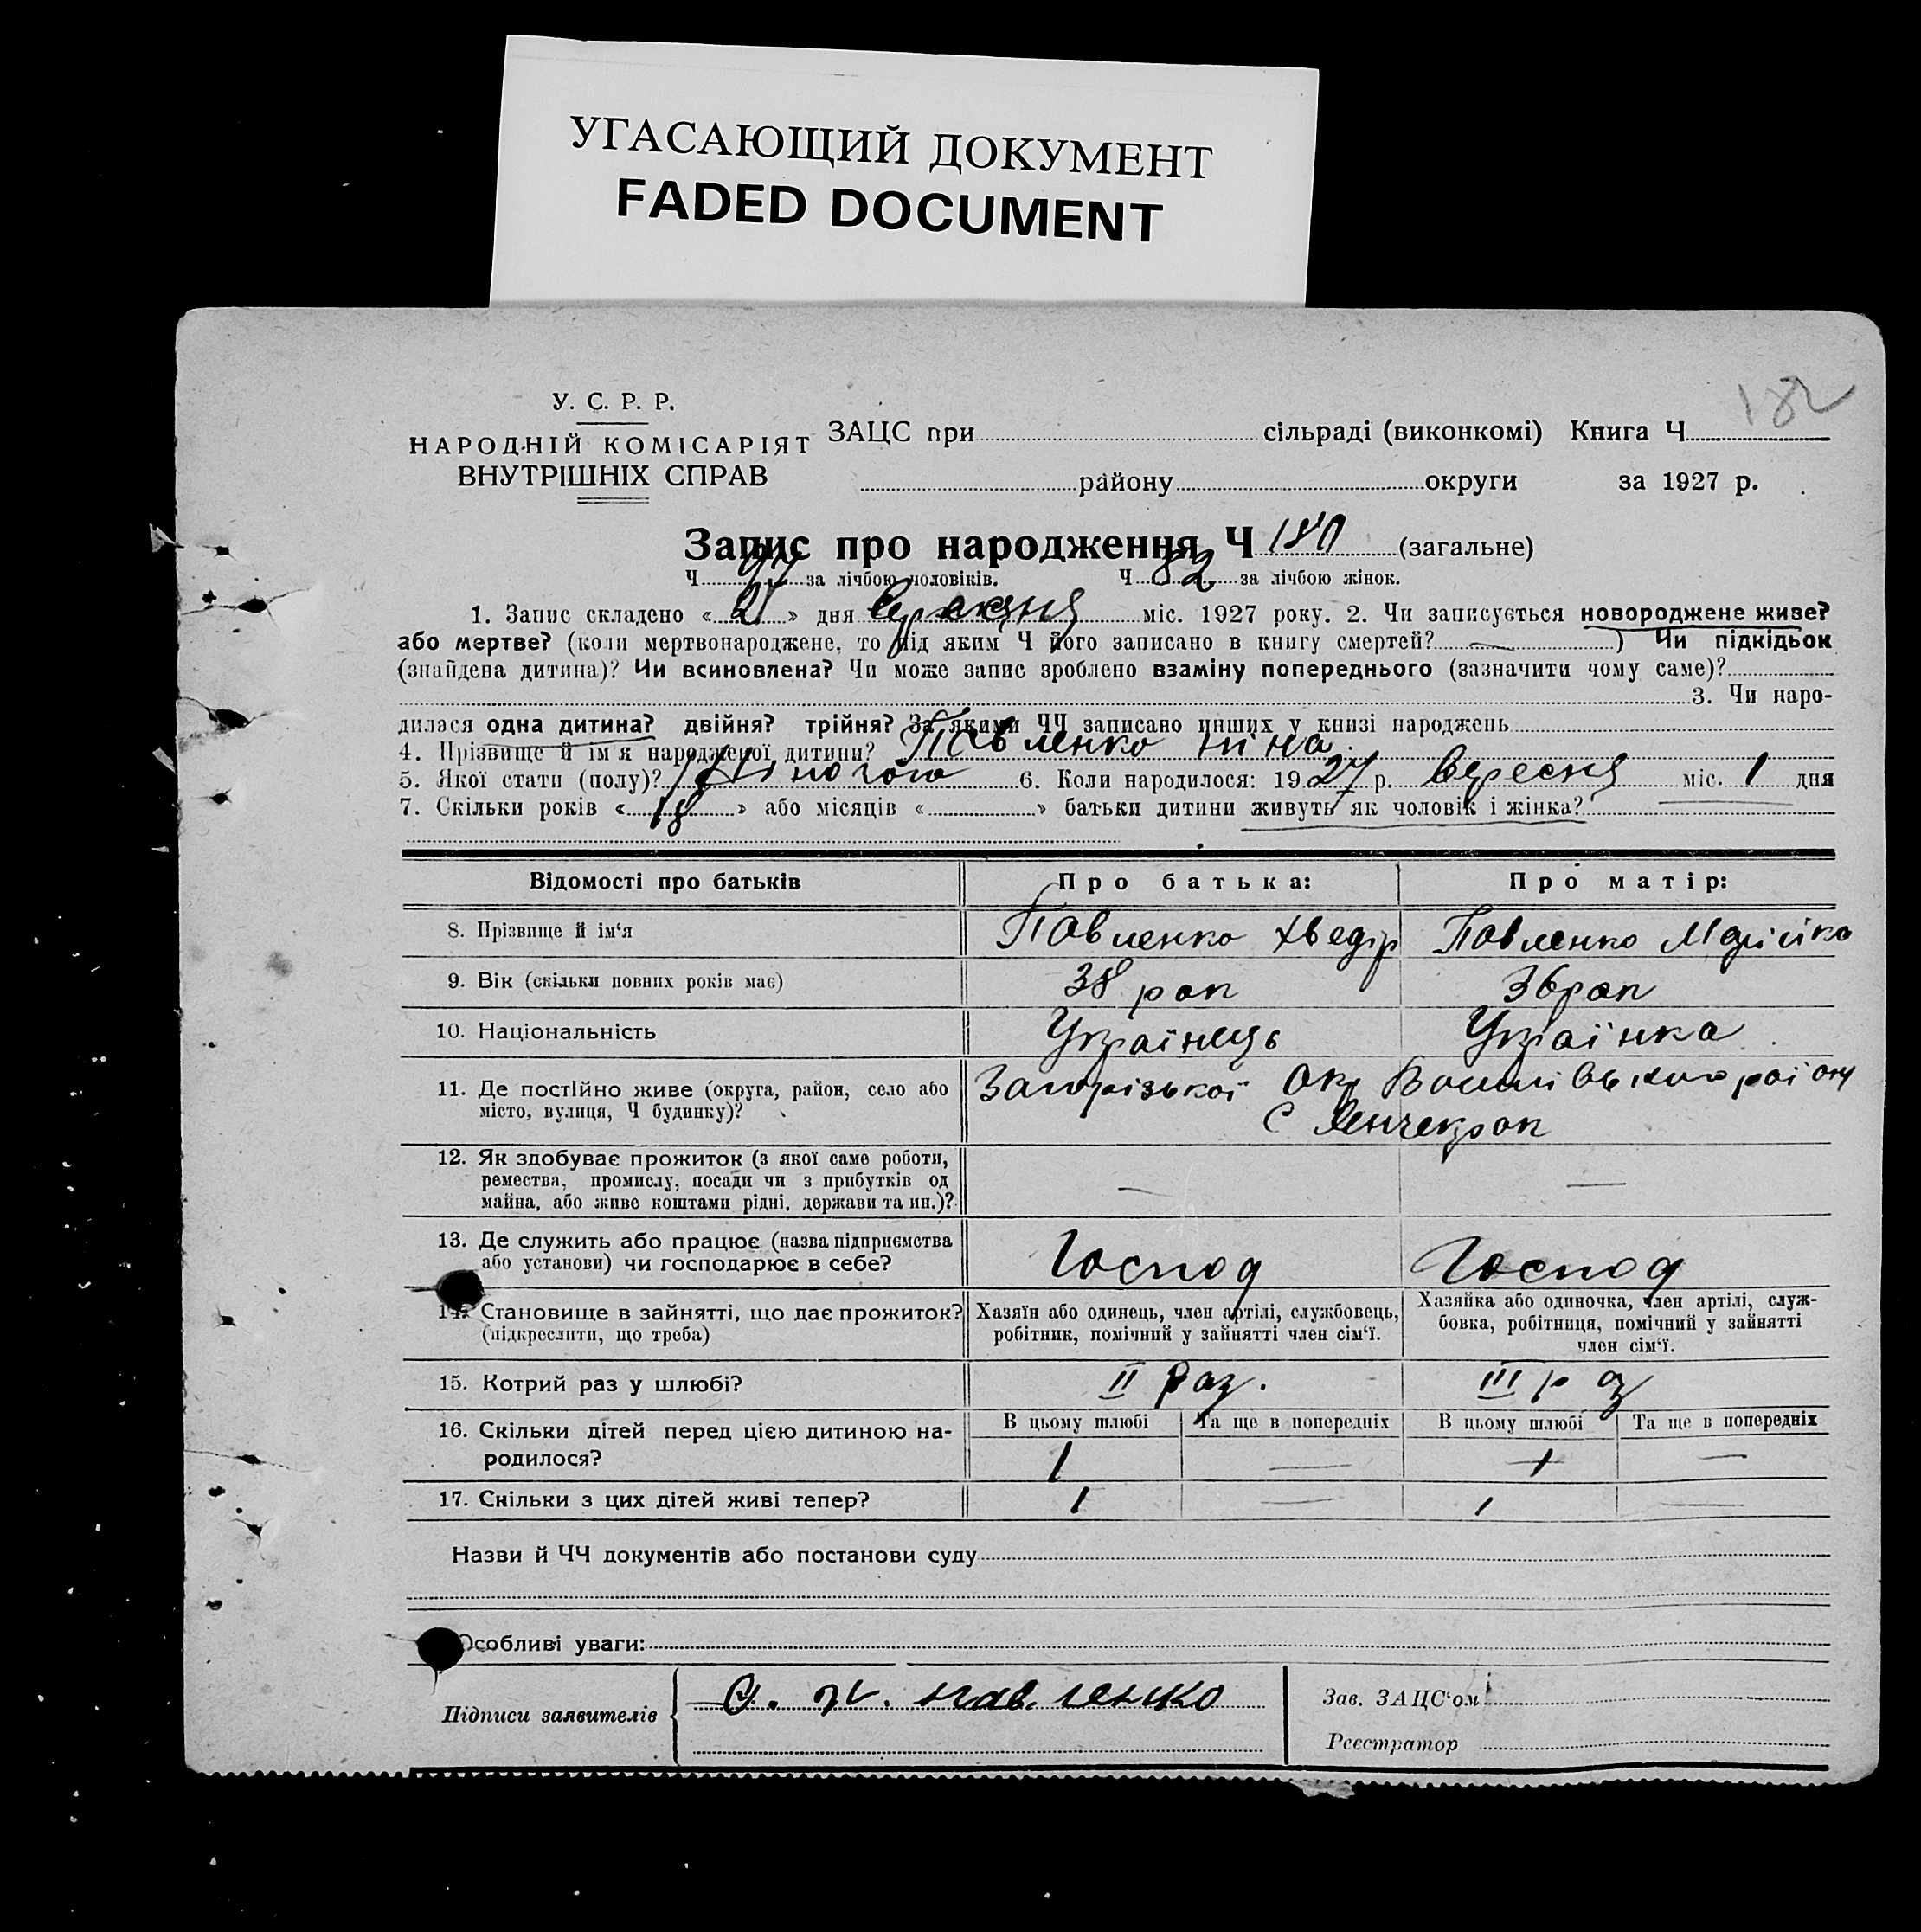 УГАСАЮЩИЙ ДОКУМЕНТ
FADED DOCUMENT
182
У. С. Р. Р.
НАРОДНІЙ КОМІСАРІЯТ
ВНУТРІШНІХ СПРАВ
ЗАЦС при сільраді (виконкомі) Книга Ч.
району округи за 1927 р.
Запис про народження Ч 180 (загальне)
Ч за лічбою чоловіків. Ч 82 за лічбою жінок.
1. Запис складено « » дня вересня міс. 1927 року. 2. Чи записується новороджене живе?
або мертве? (коли мертвонароджене, то під яким Ч його записано в книгу смертей? — ) Чи підкідьок
(знайдена дитина)? Чи всиновлена? Чи може запис зроблено взаміну попереднього (зазначити чому саме)?
3. Чи наро-
дилася одна дитина? двійня? трійня? За якими ЧЧ записано инших у книзі народжень
4. Прізвище й ім'я народженої дитини? Павленко Ніна
5. Якої стати (полу)? Жіночого 6. Коли народилося: 1927 р. вересня міс. 1 дня
7. Скільки років « 18 » або місяців « » батьки дитини живуть як чоловік і жінка?
Відомості про батьків Про батька: Про матір:
8. Прізвище й ім'я Павленко Хведір Павленко Марійка
9. Вік (скільки повних років має) 38 рок 36 рок
10. Національність Українець Українка
11. Де постійно живе (округа, район, село або
місто, вулиця, Ч будинку)?
Запорізької Окр Василівського району
с Янчекрак
12. Як здобуває прожиток (з якої саме роботи,
ремества, промислу, посади чи з прибутків од
майна, або живе коштами рідні, держави та ин.)? — —
13. Де служить або працює (назва підприємства
або установи) чи господарює в себе? Господ Господ
14. Становище в зайнятті, що дає прожиток?
(підкреслити, що треба)
Хазяїн або одинець, член артілі, службовець,
робітник, помічний у зайнятті член сім'ї.
Хазяйка або одиночка, член артілі, служ-
бовка, робітниця, помічний у зайнятті
член сім'ї.
15. Котрий раз у шлюбі? II раз. III раз
16. Скільки дітей перед цією дитиною на-
родилося?
В цьому шлюбі Та ще в попередніх В цьому шлюбі Та ще в попередніх
1 — 1 —
17. Скільки з цих дітей живі тепер? 1 — 1 —
Назви й ЧЧ документів або постанови суду
Особливі уваги:
Підписи заявителів павленко
Зав. ЗАЦС'ом
Реєстратор